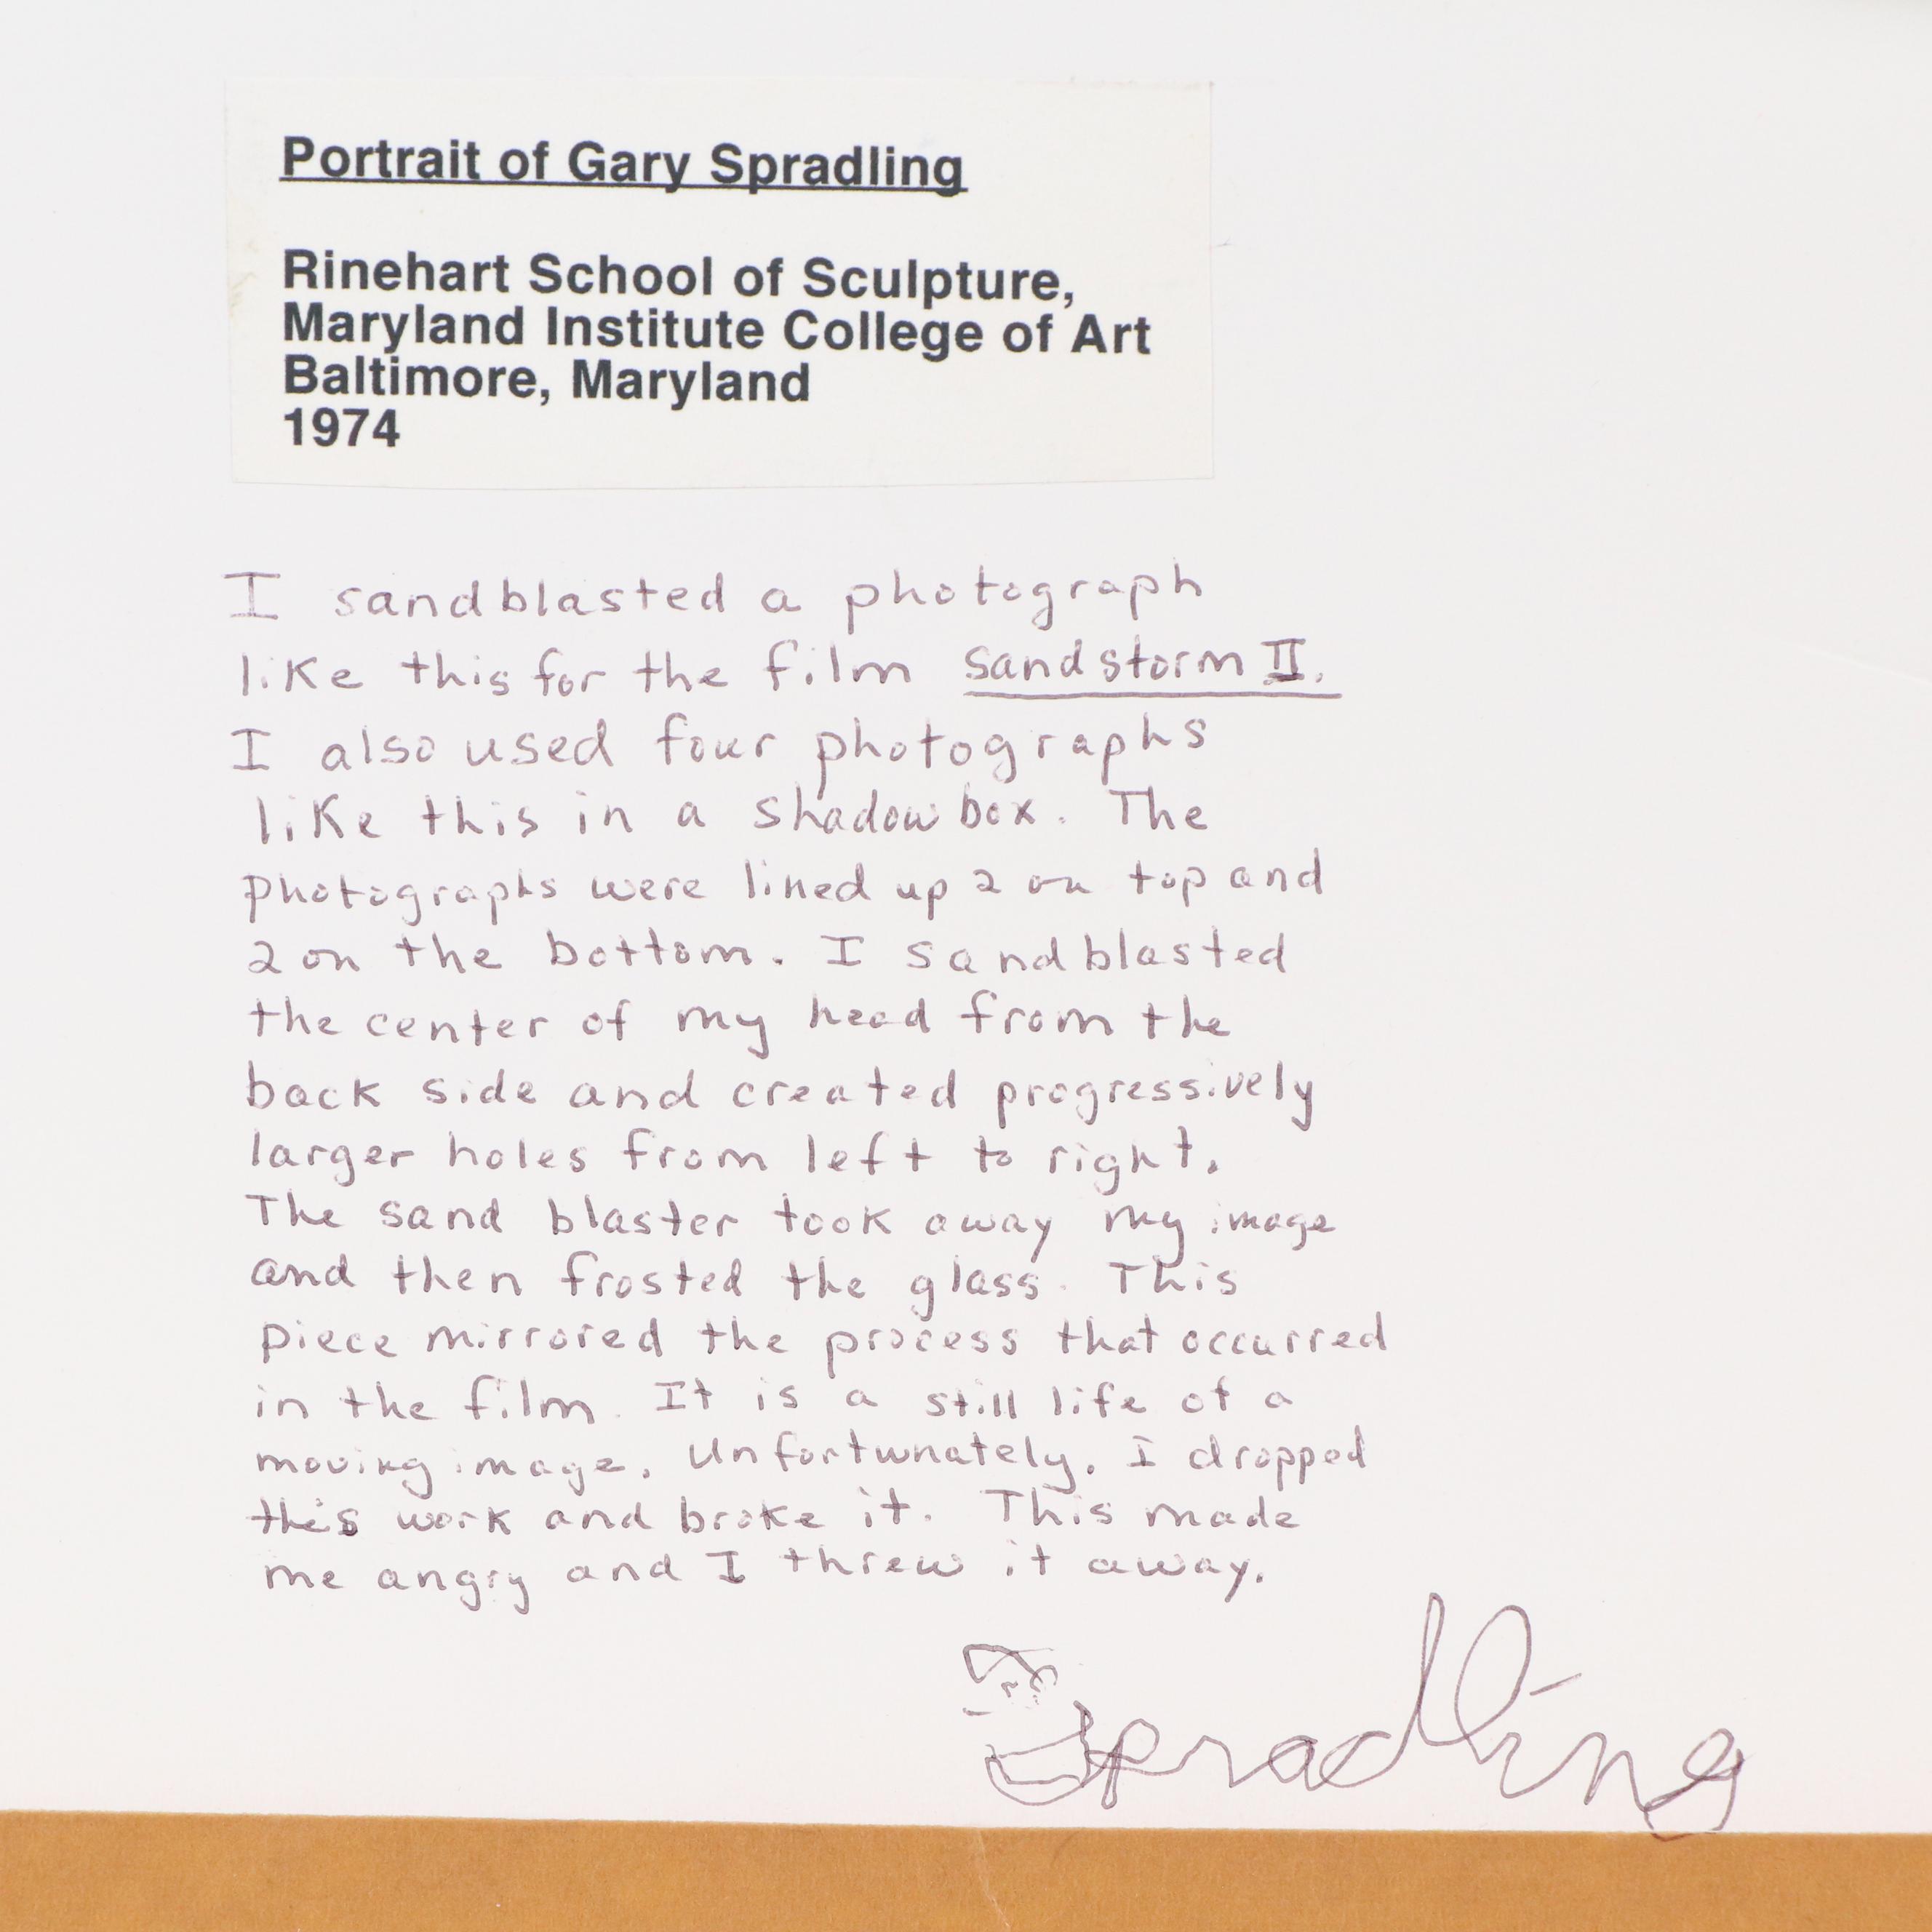 Portrait of Gary Spradling
Rinehart School of Sculpture,
Maryland Institute College of Art
Baltimore, Maryland
1974
I sandblasted a photograph
like this for the film Sandstorm II.
I also used four photographs
like this in a shadow box. The
photographs were lined up 2 on top and
2 on the bottom. I sandblasted
the center of my head from the
back side and created progressively
larger holes from left to right.
The sand blaster took away my image
and then frosted the glass. This
piece mirrored the process that occurred
in the film. It is a still life of a
moving image. Unfortunately, I dropped
this work and broke it. This made
me angry and I threw it away.
Spradling